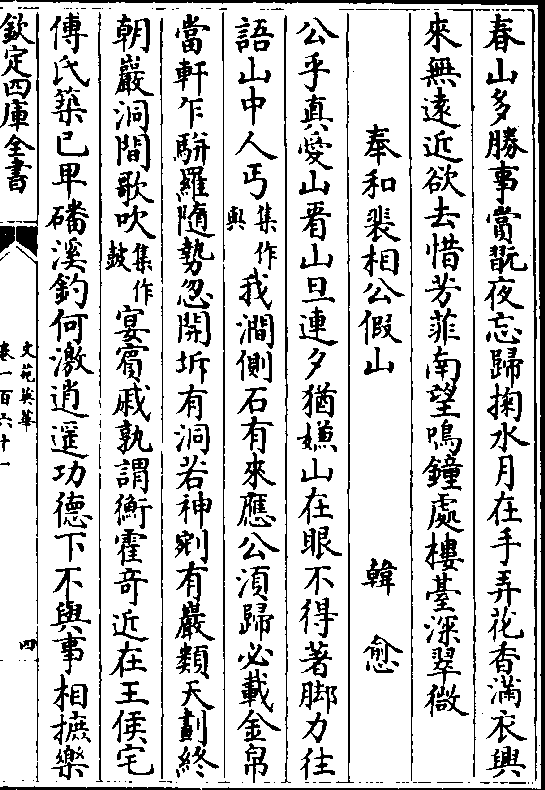 春山多勝事賞翫夜忘歸掬水月在手弄花香滿衣興
來無遠近欲去惜芳菲南望鳴鐘處樓臺深翠微
奉和裴相公假山 韓愈
公乎真愛山看山旦連夕猶嫌山在眼不得著脚力往
語山中人丐集作與我澗側石有來應公湏歸必載金帛
當軒乍駢羅隨勢忽開坼有洞若神剜有巖類天劃終
朝巖洞間歌吹集作鼓宴賓戚孰謂衡霍竒近在王侯宅
傅氏築已卑磻溪釣何激逍遥功德下不與事相摭樂
欽定四庫全書
文苑英華
卷一百六十一
四